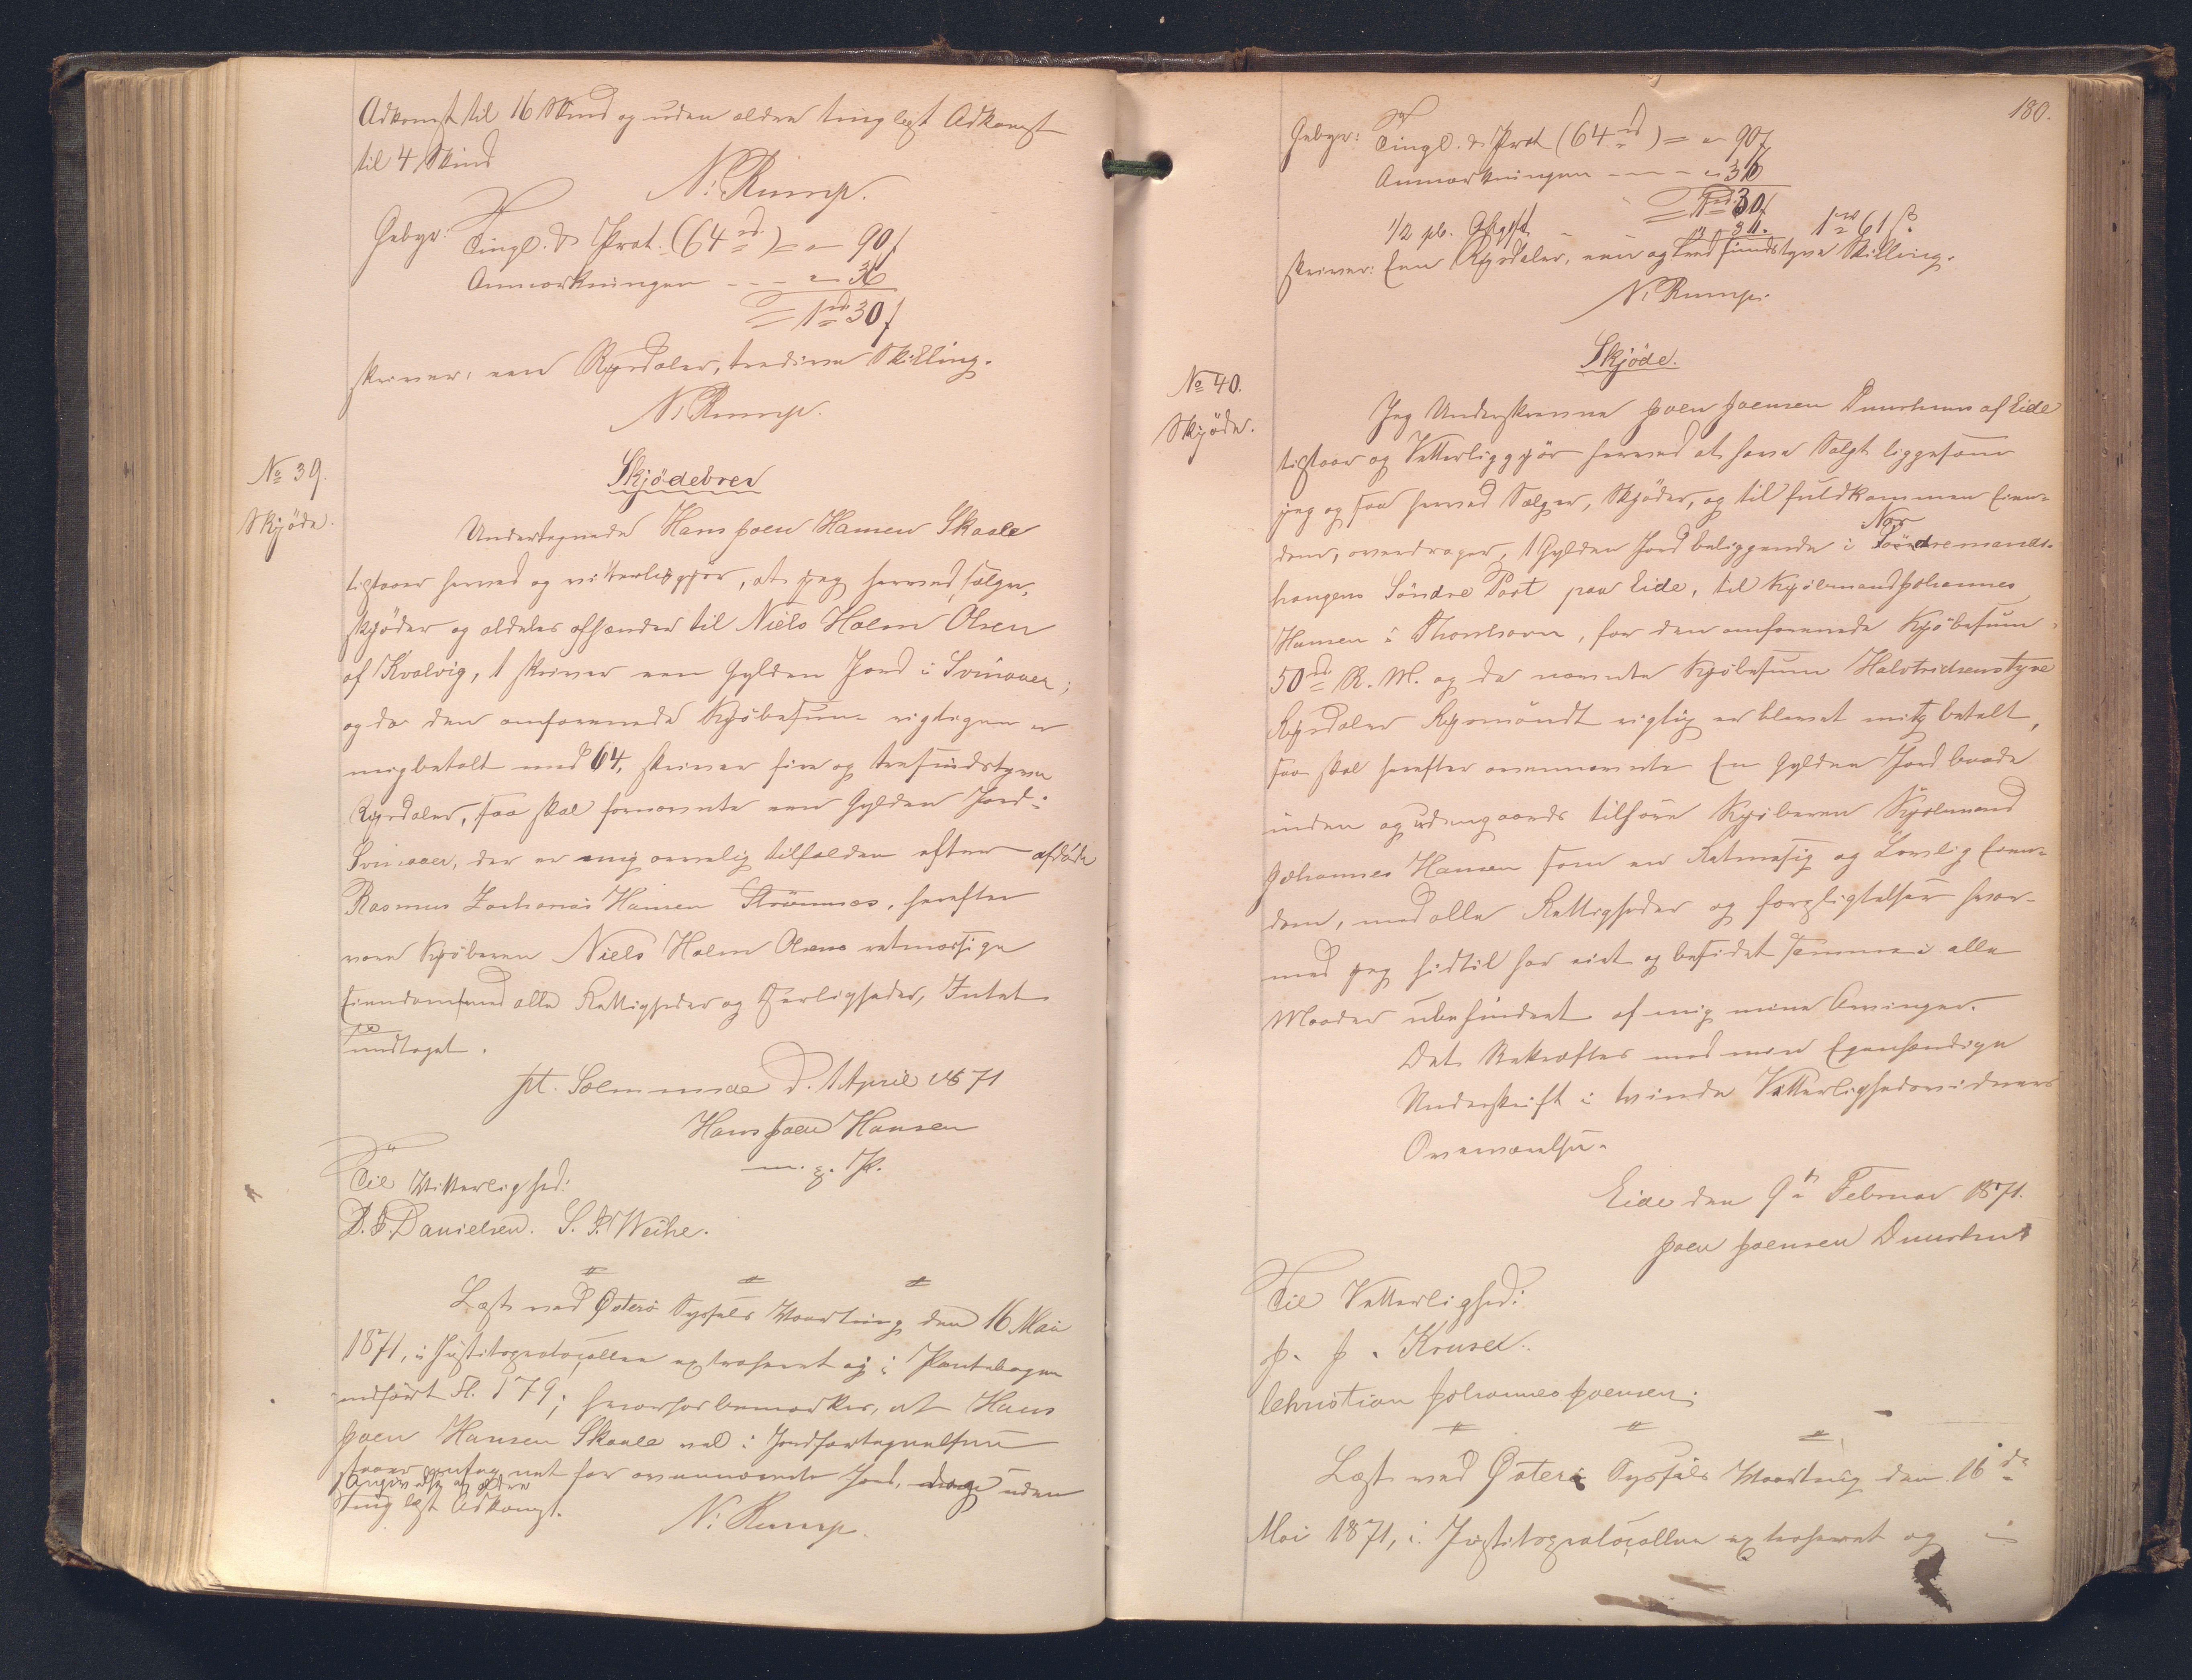 Adkomst til 16 Skind og uden ældre tinglæst Adkomst
til 4 Skind
N. Rump.
Gebyr: Tingl. & Prot. (64 rd.) = " 90 ſ
Anmærkningen - - - " 36
= 1 rd. 30 ſ
skriver: een Rigsdaler, tredive Skilling.
N. Rump.
No 39.
Skjöde.
Skjödebrev
Undertegnede Hans Joen Hansen Skaale
tilstaaer herved og vitterliggjør, at jeg herved sælger,
skjøder og aldeles afhænder til Niels Holm Olsen
af Kvalvig, 1 skriver een Gylden Jord i Svinaaer;
og da den omforenede Kjøbesum rigtigen er
mig betalt med 64, skriver fire og tresindstyve
Rigsdaler, saa skal fornævnte een Gylden Jord i
Svinaaer, der er mig arvelig tilfalden efter afdøde
Rasmus Zacharias Hansen Strömnæs, herefter
være Kjøberen Niels Holm Olsens retmæssige
Eiendom med alle Rettigheder og Herligheder, Intet
undtaget.
pt. Selmunde d. 1 April 1871
Hans Joen Hansen
m. p. P.
Til Vitterlighed:
D. J. Danielsen. S. P. Weihe.
Læst ved Østerø Syssels Vaarting den 16 Mai
1871, i Justitsprotocollen extraheret og i Pantebogen
indført fl. 179; hvorhos bemærkes, at Hans
Joen Hansen Skaale vel i Jordfortegnelsen
staaer antegnet for ovennævnte Jord, dog uden
Angivelse af ældre
tinglæst Adkomst.
N. Rump.
180.
Gebyr: Tingl. & Prot (64 rd) = " 90 ſ
Anmærkningen - - - " 36
= 1 rd. 30 ſ
1/2 pc. Afgift - " 31. 1 rd 61 ß
skriver: Een Rigsdaler, een og tresindstyve Skilling.
N. Rump.
No 40.
Skjöde.
Skjöde.
Jeg Underskrevne Joen Joensen Duurhuus af Eide
tilstaar og Vitterliggjør herved at have Solgt liggesom
jeg og saa herved Sælger, Skjøder, og til fuldkommen Eien-
dom, overdrager, 1 Gylden Jord beliggende i Söndremands-
Nor
haugens Söndre Part paa Eide, til Kjøbmand Johannes
Hansen i Thorshavn, for den omforenede Kjøbesum,
50 rd. R. M. og da nævnte Kjøbesum Halvtridsenstyve
Rigsdaler Rigsmöndt rigtig er blevet mig betalt,
saa skal herefter ovennævnte En Gylden Jord baade
inden og udengaards tilhøre Kjøberen Kjøbmand
Johannes Hansen som en Retmæsig og Lovlig Eien-
dom, med alle Rettigheder og forpligtelser hvor-
med jeg hidtil har eiet og besidet samme i alle
Maader ubehindret af mig mine Arvinger.
Det Bekræftes med min Egenhændige
Underskrift i tvinde Vitterlighedsvidners
Overværelse.
Eide den 9de Februar 1871.
Joen Joensen Duurhuus
Til Vitterlighed:
J. J. Kruse.
Christian Johannes Joensen.
Læst ved Østerø Syssels Vaarting den 16de
Mai 1871, i Justitsprotocollen extraheret og i